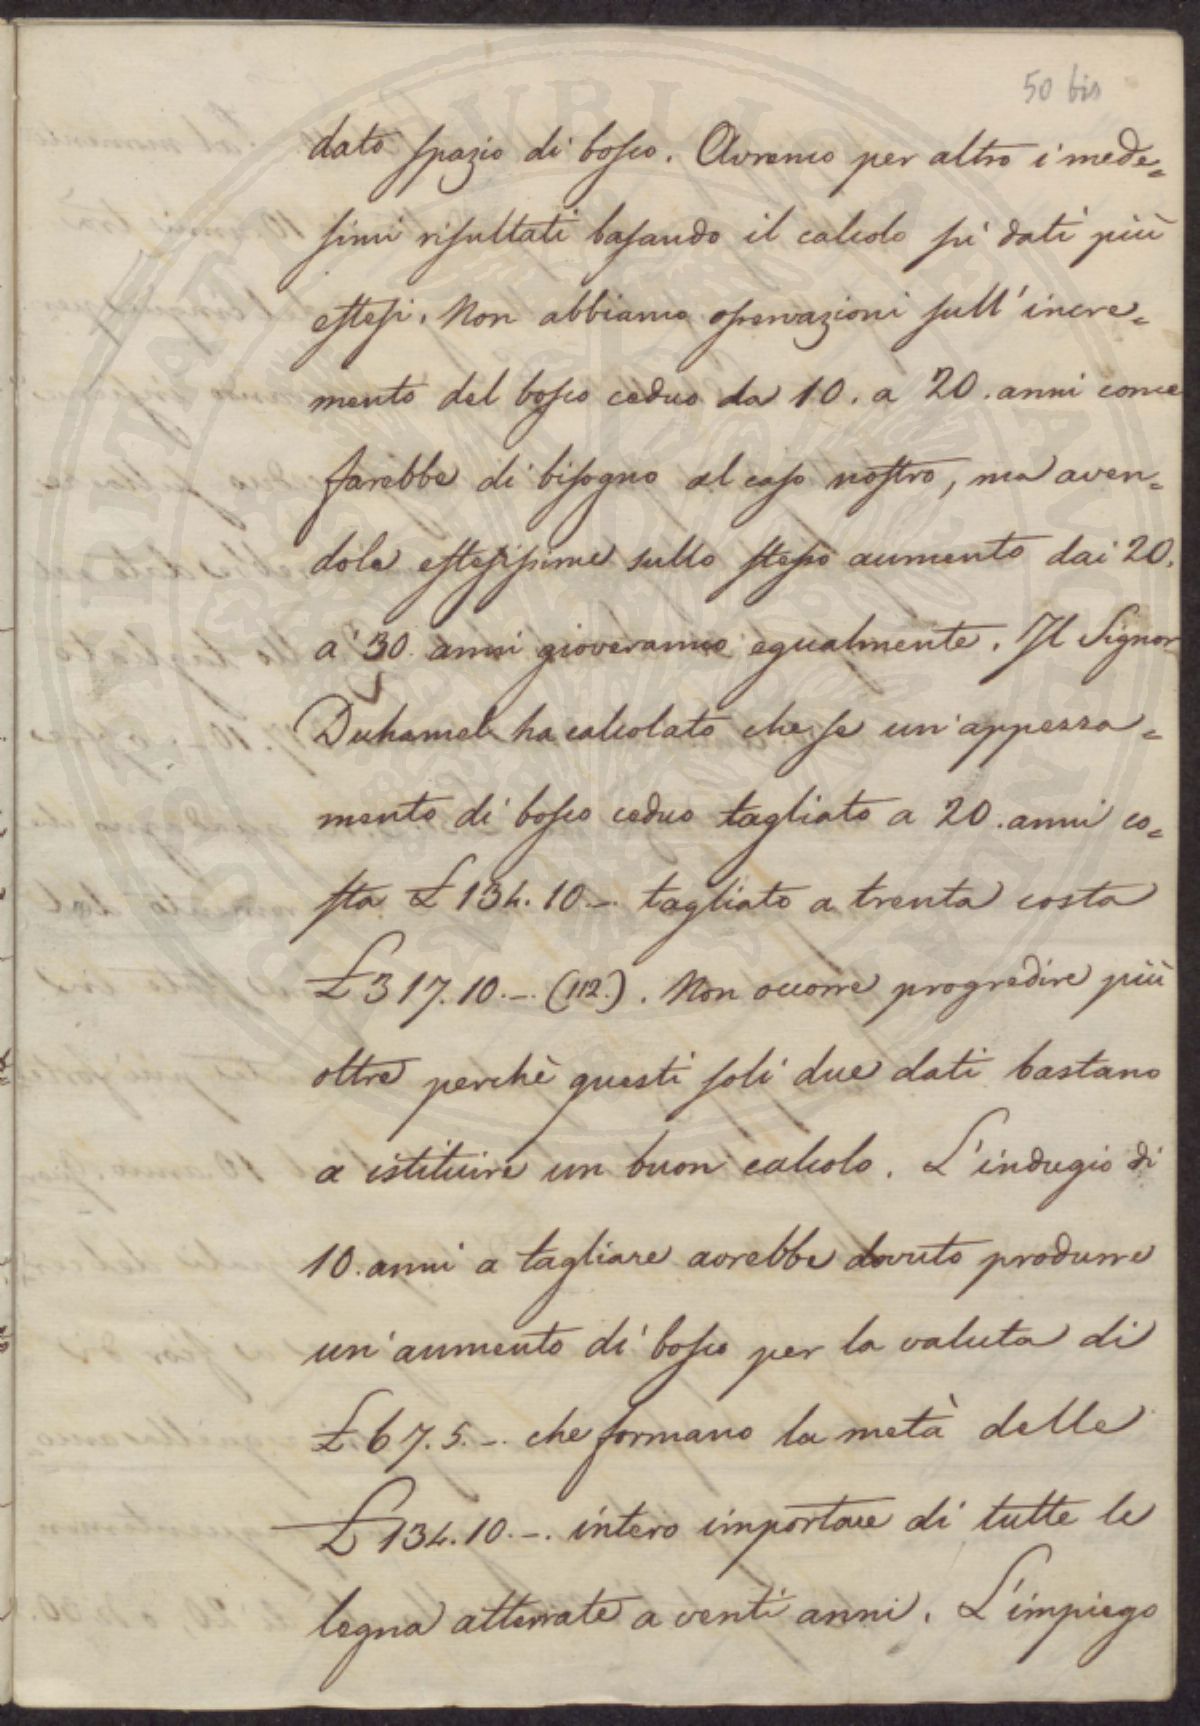 50 bis
dato spazio di bosco. Avremo per altro i mede=
simi risultati basando il calcolo su dati più
estesi. Non abbiamo osservazioni sull'incre=
mento del bosco ceduo da 10. a 20. anni come
farebbe di bisogno al caso nostro, ma aven=
dole estesissime sullo stesso aumento dai 20.
a' 30. anni gioveranno egualmente. Il Signor
Duhamel ha calcolato che se un'appezza=
mento di bosco ceduo tagliato a 20. anni co=
sta £ 134.10.-. tagliato a trenta costa
£ 317.10.-. (112.). Non occorre progredire più
oltre perchè questi soli due dati bastano
a istituire un buon calcolo. L'indugio di
10. anni a tagliare avrebbe dovuto produrre
un'aumento di bosco per la valuta di
£ 67.5.-. che formano la metà delle
£ 134.10.-. intero importare di tutte le
legna atterrate a venti anni. L'impiego